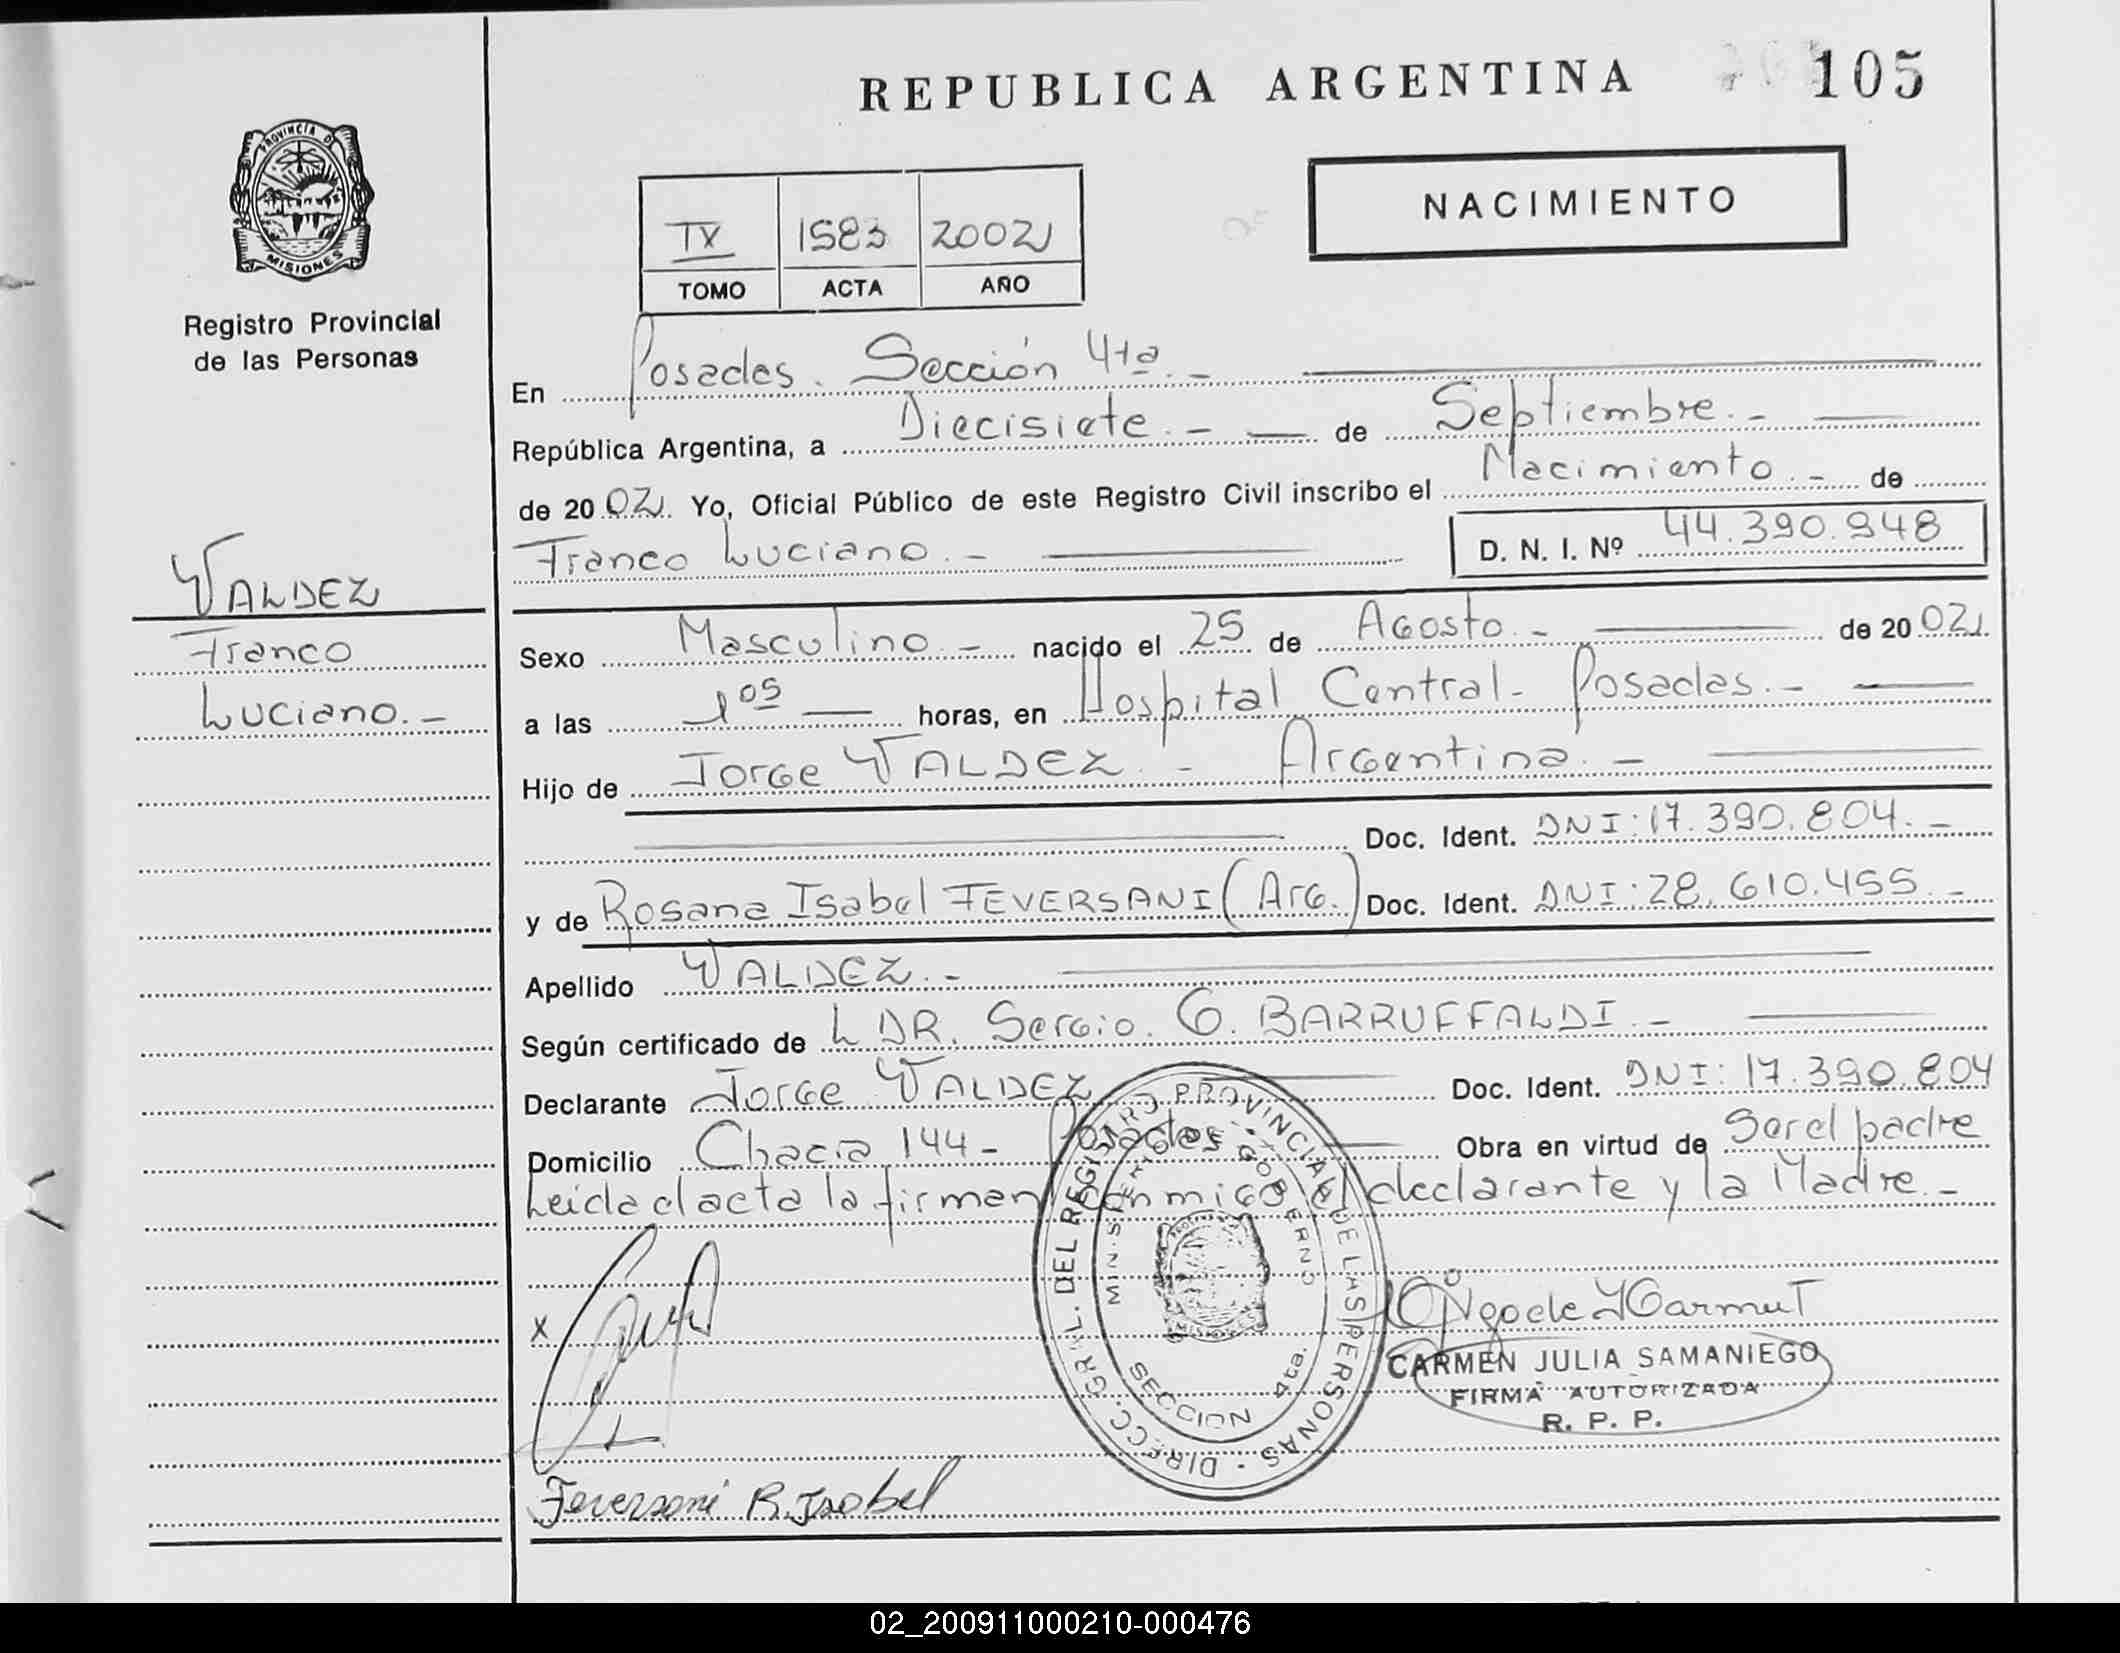 REPUBLICA ARGENTINA
105
PROVINCIA DE
MISIONES
Registro Provincial
de las Personas
IX 1583 2002
TOMO ACTA AÑO
NACIMIENTO
En Posadas. Sección 4ta.-
República Argentina, a Diecisiete.- de Septiembre.-
de 2002. Yo, Oficial Público de este Registro Civil inscribo el Nacimiento.- de
Franco Luciano.-
D. N. I. Nº 44.390.948
VALDEZ
Franco
Luciano.-
Sexo Masculino.- nacido el 25 de Agosto.- de 2002.
a las 1 05 horas, en Hospital Central- Posadas.-
Hijo de Jorge VALDEZ.- Argentina.-
Doc. Ident. DNI: 17.390.804.-
y de Rosana Isabel FEVERSANI (Arg.) Doc. Ident. DNI: 28.610.455.-
Apellido VALDEZ.-
Según certificado de L DR. Sergio. G. BARRUFFALDI.-
Declarante Jorge VALDEZ Doc. Ident. DNI: 17.390.804
Domicilio Chacra 144- Posadas.- Obra en virtud de Ser el padre
Leida el acta la firman conmigo el declarante y la Madre.-
DIRECC. GRAL. DEL REGISTRO PROVINCIAL DE LAS PERSONAS
MINISTERIO GOBIERNO
SECCION 4ta.
X
CARMEN JULIA SAMANIEGO
FIRMA AUTORIZADA
R. P. P.
Feversani R. Isabel
02_200911000210-000476